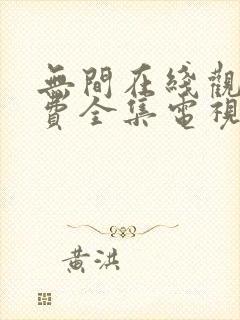 無間在綫觀
費全集電視
黃洪